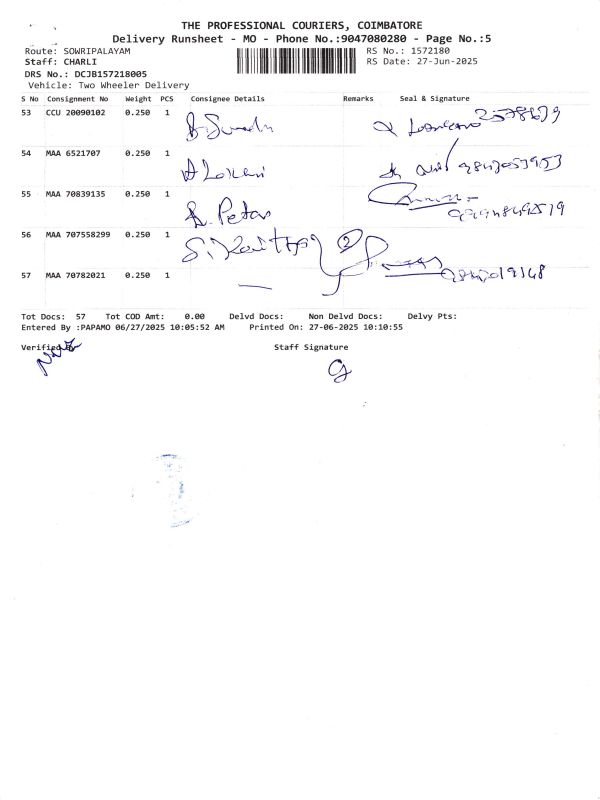 THE PROFESSIONAL COURIERS, COIMBATORE
Delivery Runsheet - MO - Phone No.:9047080280 - Page No.:5
Route: SOWRIPALAYAM RS No.: 1572180
Staff: CHARLI RS Date: 27-Jun-2025
DRS No.: DCJB157218005
Vehicle: Two Wheeler Delivery
S No Consignment No Weight PCS Consignee Details Remarks Seal & Signature
53 CCU 20090102 0.250 1 2578679
54 MAA 6521707 0.250 1
55 MAA 70839135 0.250 1 Peter
56 MAA 707558299 0.250 1 2
57 MAA 70782021 0.250 1
Tot Docs: 57 Tot COD Amt: 0.00 Delvd Docs: Non Delvd Docs: Delvy Pts:
Entered By :PAPAMO 06/27/2025 10:05:52 AM Printed On: 27-06-2025 10:10:55
Verified By Staff Signature